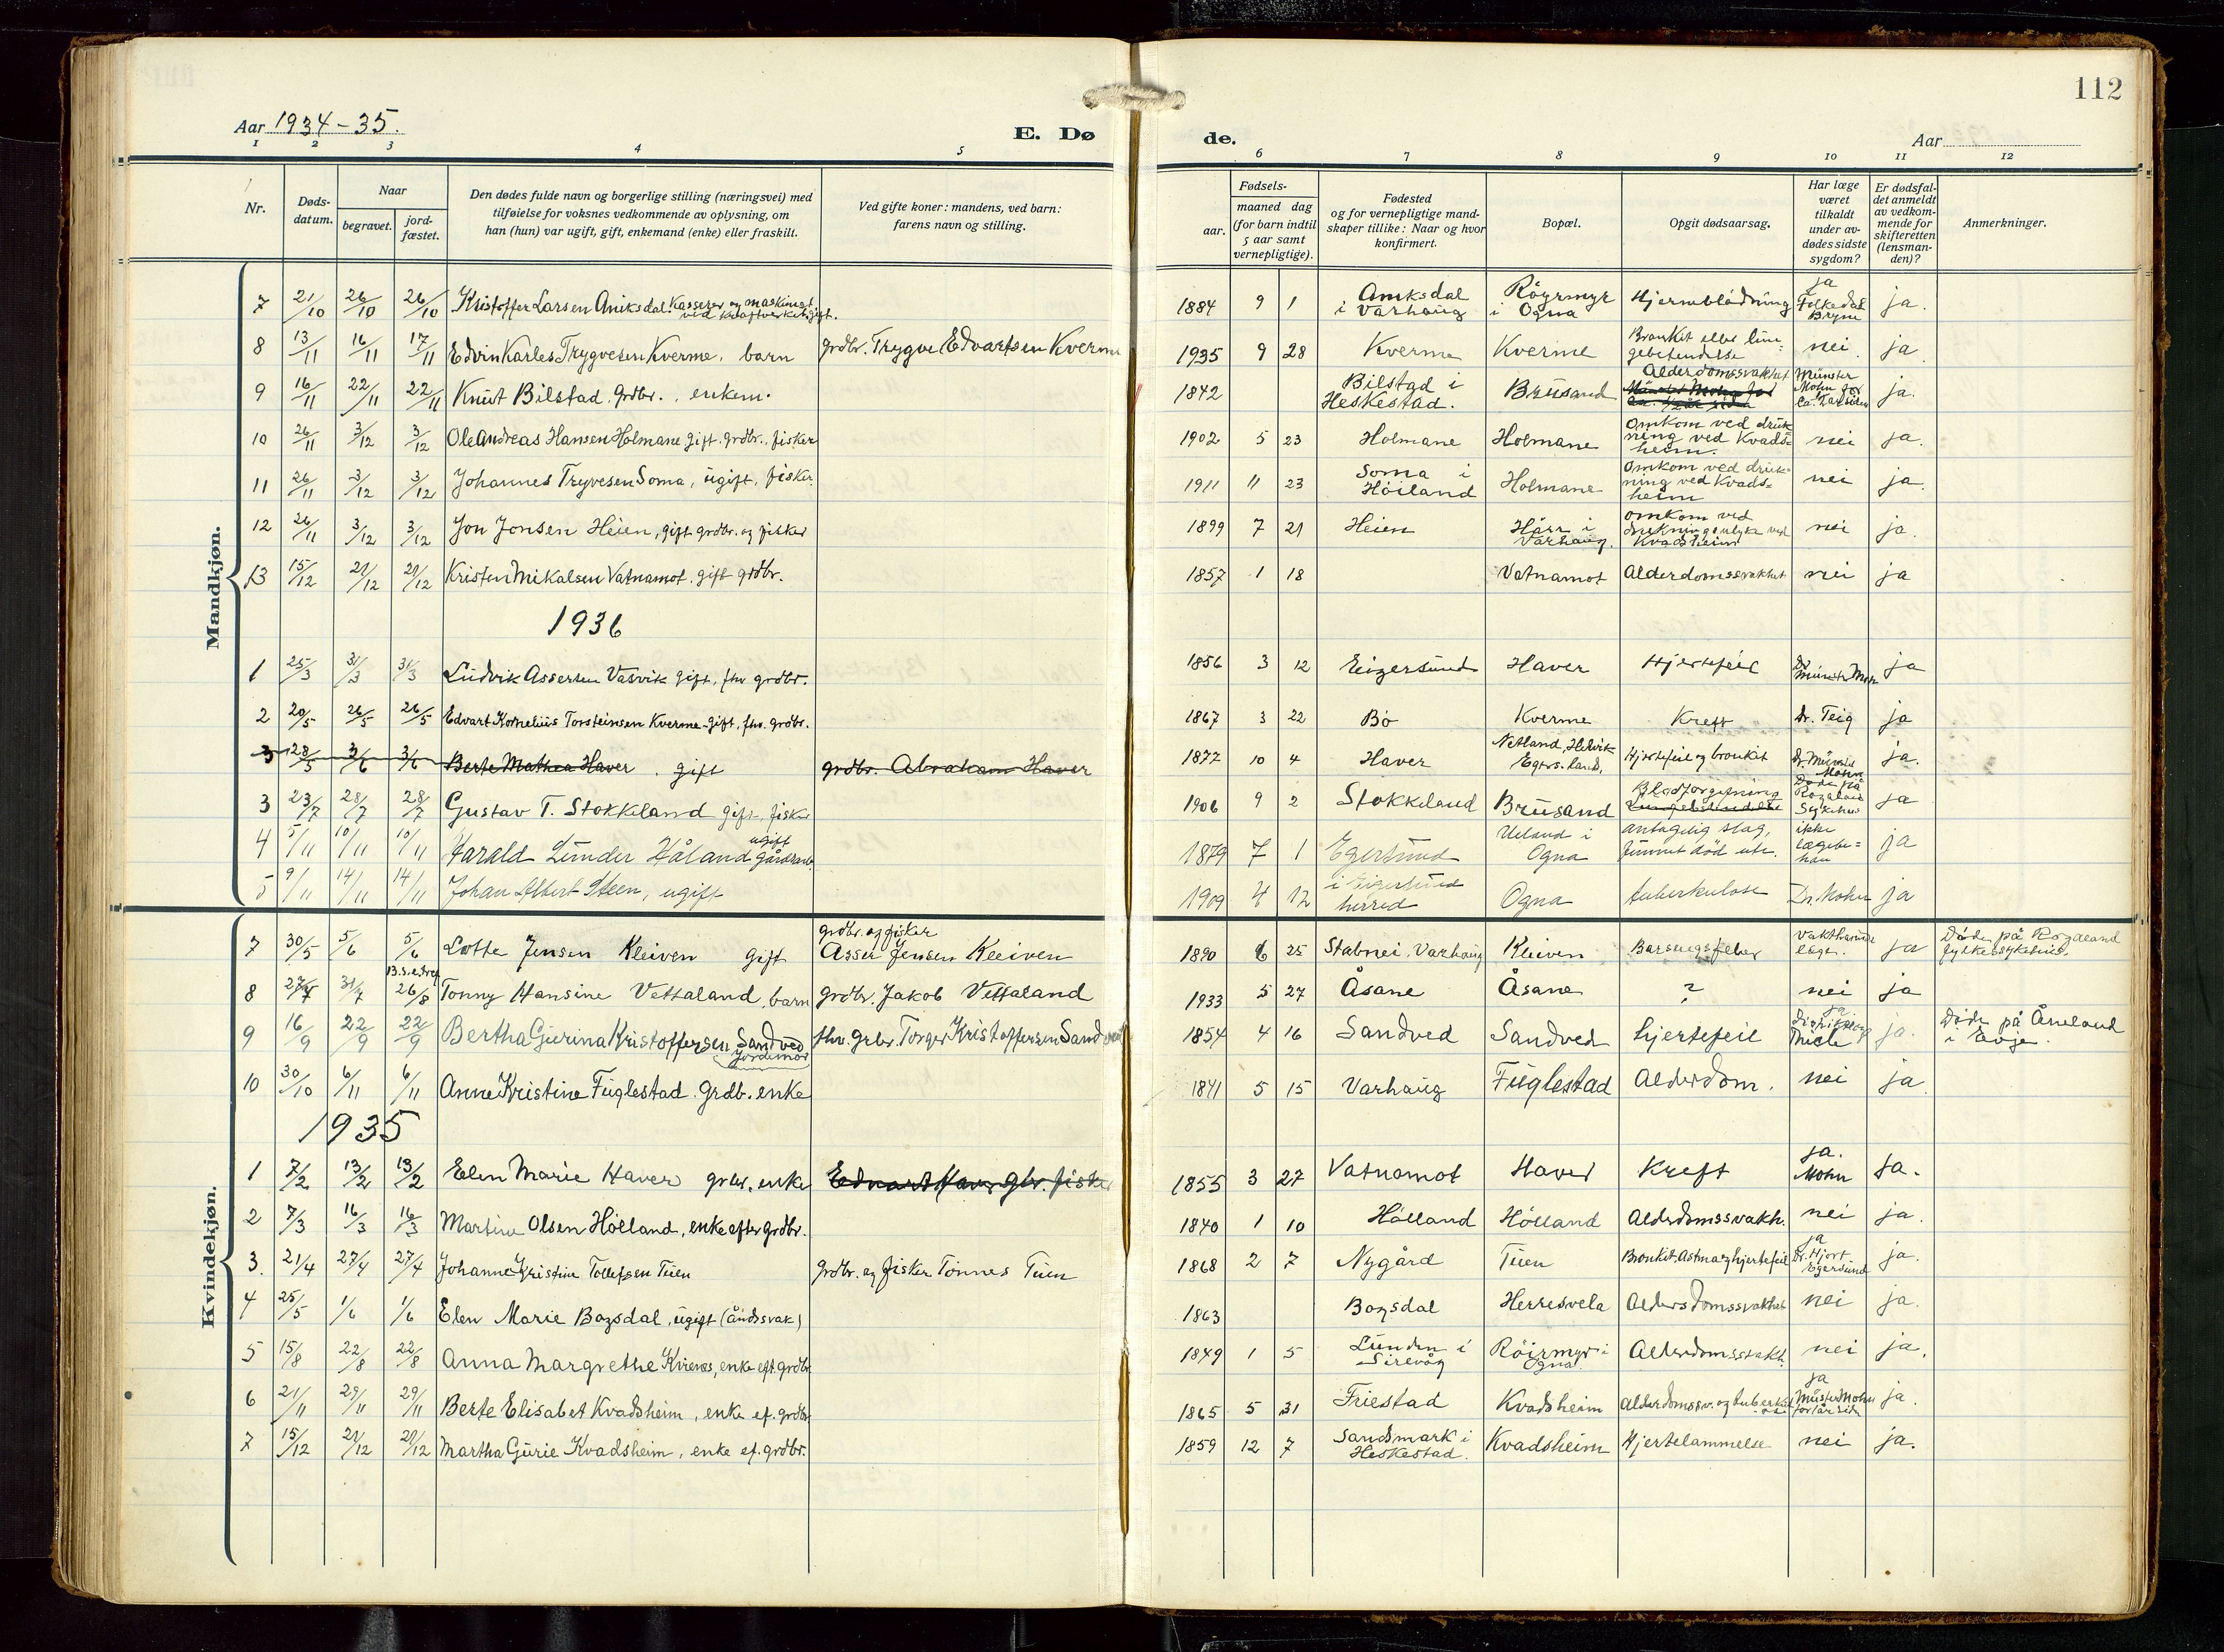 112
Aar 1934-35.
E. Dø de.
Aar
1 2 3 4 5 6 7 8 9 10 11 12
Nr.
Døds-
datum.
Naar
begravet.
jord-
fæstet.
Den dødes fulde navn og borgerlige stilling (næringsvei) med
tilføielse for voksnes vedkommende av oplysning, om
han (hun) var ugift, gift, enkemand (enke) eller fraskilt.
Ved gifte koner: mandens, ved barn:
farens navn og stilling.
Fødsels-
aar.
maaned dag
(for barn indtil
5 aar samt
vernepligtige).
Fødested
og for vernepligtige mand-
skaper tillike: Naar og hvor
konfirmert.
Bopæl.
Opgit dødsaarsag.
Har læge
været
tilkaldt
under av-
dødes sidste
sygdom?
Er dødsfal-
det anmeldt
av vedkom-
mende for
skifteretten
(lensman-
den)?
Anmerkninger.
Mandkjøn.
7 21/10 26/10 26/10 Kristoffer Larsen Aniksdal. Kasserer og maskinist ved kraftverket gift. 1884 9 1 Aniksdal i Varhaug Röyrmyr i Ogna Hjerneblødning ja Folkedal Bryne ja.
8 13/11 16/11 17/11 Edvin Karles Trygvesen Kverme, barn grdbr. Trygve Edvartsen Kverme 1935 9 28 Kverme Kverme Bronkit eller lungebetendelse nei. ja
9 16/11 22/11 22/11 Knut Bilstad. grdbr., enkem. 1842 Bilstad i Heskestad. Brusand Alderdomssvakhet Münster Mohn for ja.
10 26/11 3/12 3/12 Ole Andreas Hansen Holmane gift. grdbr., fisker 1902 5 23 Holmane Holmane Omkom ved drukning ved Kvadsheim. nei ja.
11 26/11 3/12 3/12 Johannes Tryvesen Soma, ugift, fisker. 1911 11 23 Soma i Höiland Holmane Omkom ved drukning ved Kvadsheim nei ja.
12 26/11 3/12 3/12 Jon Jonsen Heien, gift grdbr. og fisker 1899 7 21 Heien Hårr i Varhaug. omkom ved drukningsulyke ved Kvadsheim nei ja.
13 15/12 21/12 21/12 Kristen Mikalsen Vatnamot, gift grdbr. 1857 1 18 Vatnamot Alderdomssvakhet nei ja
1936
1 25/3 31/3 31/3 Ludvik Assersen Vasvik gift, fhv grdbr. 1856 3 12 Eigersund Haver Hjertefeil Dr Münster Mohn ja
2 20/5 26/5 26/5 Edvart Kornelius Torsteinsen Kverme - gift, fhv. grdbr. 1867 3 22 Bö Kverme Kreft Dr. Teig ja
3 28/5 3/6 3/6 Berte Mathea Haver. gift grdbr. Abraham Haver 1877 10 4 Haver Netland, Helvik Egers. land, Hjertefeil og bronkit Dr. Münster Mohn ja.
3 23/7 28/7 28/7 Gustav T. Stokkeland gift, fisker 1906 9 2 Stokkeland Brusand Blodforgiftning Lungebetendelse Döde på Rogaland Sykehus ja
4 5/11 10/11 10/11 Harald Lunder Håland ugift gårdsarb. 1879 7 1 Egersund Ueland i Ogna antagelig slag, funnet död ute. ikke lægebehan ja
5 9/11 14/11 14/11 Johan Albert Steen, ugift 1909 4 12 i Eigersund herred Ogna tuberkulose Dr. Mohn ja
Kvindekjøn.
7 30/5 5/6 5/6 Lotte Jensen Kleiven gift grdbr. og fisker Asser Jensen Kleiven 1890 6 25 Stabnei. Varhaug Kleiven Barselfeber vakthavende læge. ja Döde på Rogaland fylkessykehus.
8 27/7 31/7 26/8 Tonny Hansine Vettaland, barn grdbr. Jakob Vettaland 1933 5 27 Åsane Åsane ? nei ja
9 16/9 22/9 22/9 Bertha Gurina Kristoffersen Sandved Jordmor fhv. grbr. Torger Kristoffersen Sandved 1854 4 16 Sandved Sandved hjertefeil ja. Thiele ja. Döde på Åneland i Evje.
10 30/10 6/11 6/11 Anne Kristine Fuglestad. Grdb. enke 1841 5 15 Varhaug Fuglestad Alderdom. nei ja
1935
1 7/2 13/2 13/2 Elen Marie Haver grbr. enke Edvart Haver gbr. fisker 1855 3 27 Vatnamot Haver Kreft ja. Mohn ja.
2 7/3 16/3 16/3 Martine Olsen Hölland, enke efter grdbr. 1840 1 10 Hölland Hölland Alderdomssvakh. nei ja.
3. 21/4 27/4 27/4 Johanne Kristine Tollefsen Tuen grdbr. og fisker Tönnes Tuen 1868 2 7 Nygård Tuen Bronkit, Astma og hjertefeil ja Dr. Hjort Egersund ja.
4 25/5 1/6 1/6 Elen Marie Bogsdal, ugift (Åndssvak) 1863 Bogsdal Herresvela Alderdomssvakhet nei ja.
5 15/8 22/8 22/8 Anna Margrethe Kverme, enke eft. grdbr. 1849 1 5 Lunden i Sirevåg Röirmyr i Ogna Alderdomssvakh. nei ja.
6 21/11 29/11 29/11 Berte Elisabet Kvadsheim, enke ef. grdbr 1865 5 31 Friestad Kvadsheim Alderdomssv. og tuberkulose ja Münster Mohn for 1 år siden ja.
7 15/12 21/12 21/12 Martha Gurie Kvadsheim, enke ef. grdbr. 1859 12 7 Sandsmark i Heskestad. Kvadsheim Hjertelammelse nei ja.